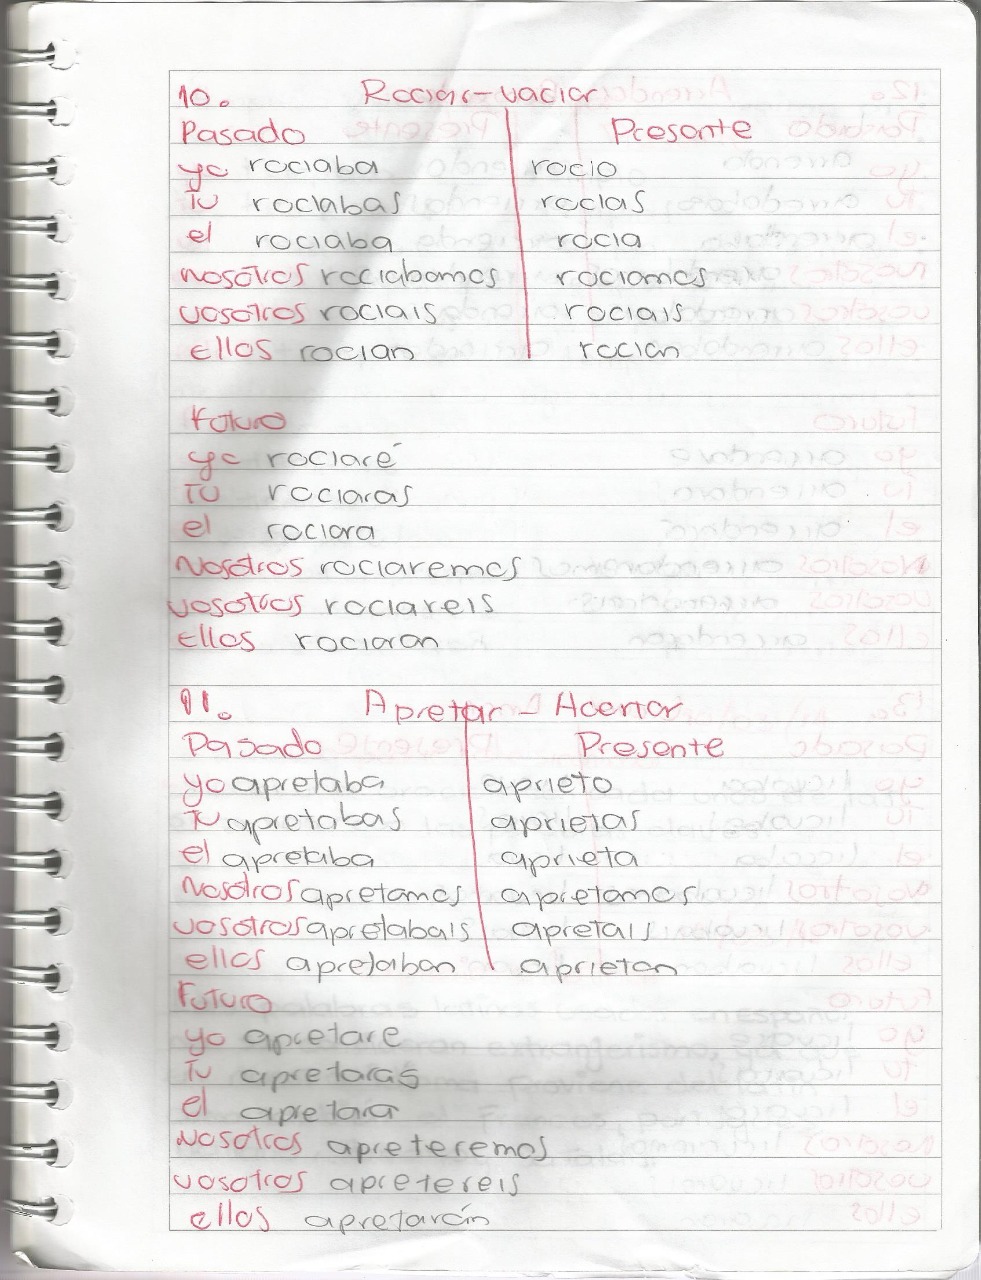 10. Rociar-vaciar
Pasado Presente
yo rociaba rocio
Tu rociabas rocias
el rociaba rocia
nosotros rociabamos rociamos
vosotros rociais rociais
Ellos rocian rocian
Futuro
yo rociaré
Tu rociaras
el rociara
Nosotros rociaremos
vosotros rociareis
Ellos rociaran
11. Apretar-Acertar
Pasado Presente
yo apretaba aprieto
Tu apretabas aprietas
el apretaba aprieta
Nosotros apretamos apretamos
vosotros apretabais apretais
ellos apretaban aprietan
Futuro
yo apretare
Tu apretaras
el apretara
Nosotros apreteremos
vosotros apretereis
ellos apretarán